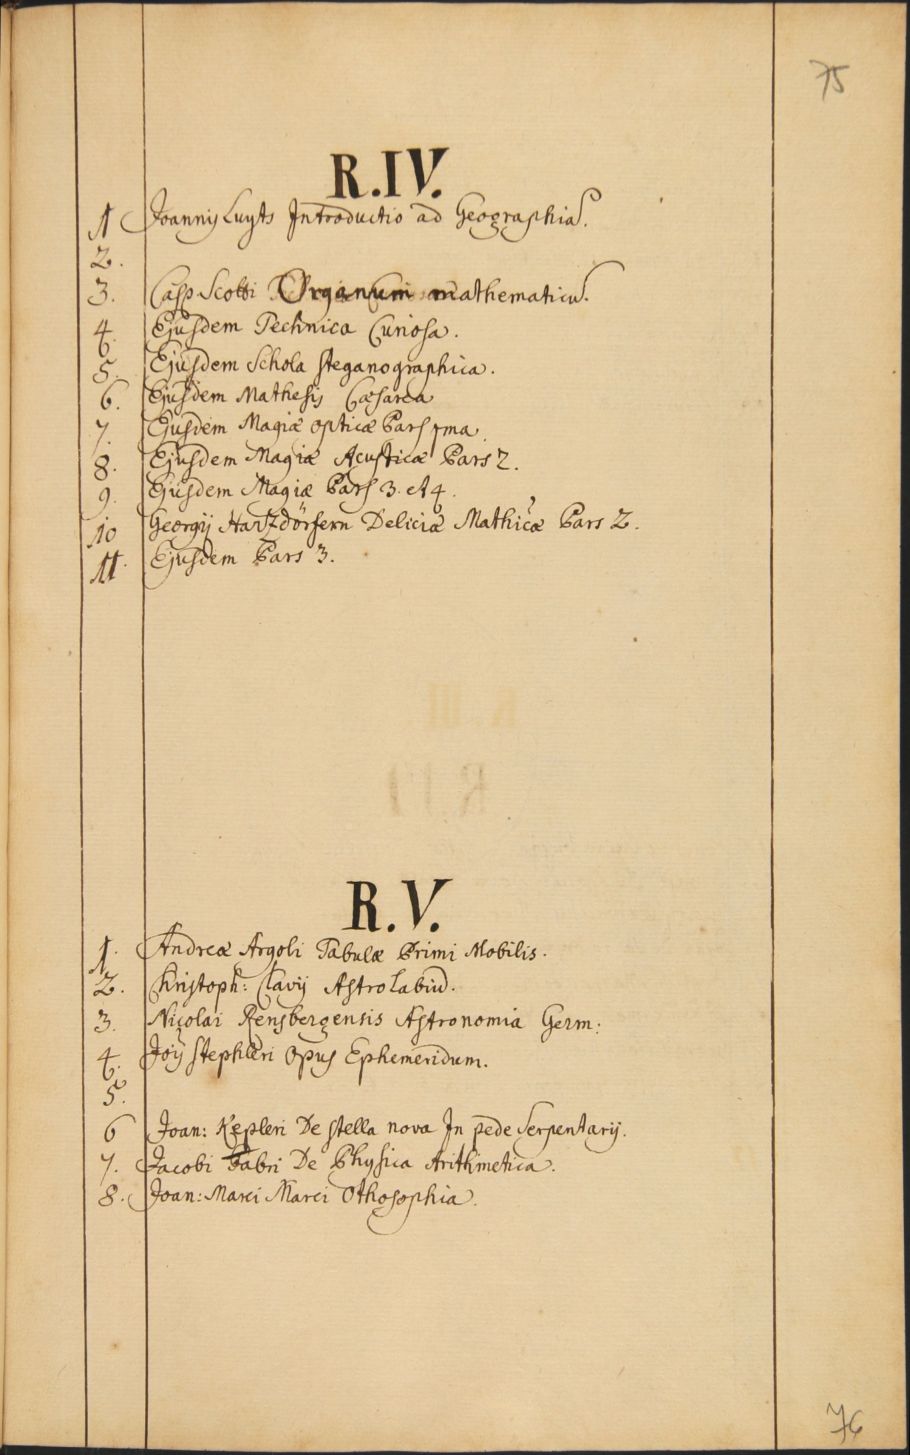 75
R.IV.
1 Joannis Luyts Introductio ad Geographia.
2.
3. Casp Scotti Organum mathematicu.
4. Ejusdem Technica Curiosa.
5. Ejusdem Schola steganographica.
6. Ejusdem Mathesis Cæsarea
7. Ejusdem Magiæ opticæ Pars 1ma.
8. Ejusdem Magiæ Acusticæ Pars 2.
9. Ejusdem Magiæ Pars 3. et 4.
10 Georgij Hartzdörfern Deliciæ Mathicæ Pars 2.
11. Ejusdem Pars 3.
R.V.
1. Andreæ Argoli Tabulæ Primi Mobilis.
2. Christoph: Clavij Astrolabiu.
3. Nicolai Rensbergensis Astronomia Germ:
4. Jois stephleri Opus Ephemeridum.
5.
6 Joan: Kepleri De stella nova In pede Serpentarij.
7. Jacobi Fabri De Physica Arithmetica.
8. Joan: Marci Marci Othosophia.
76